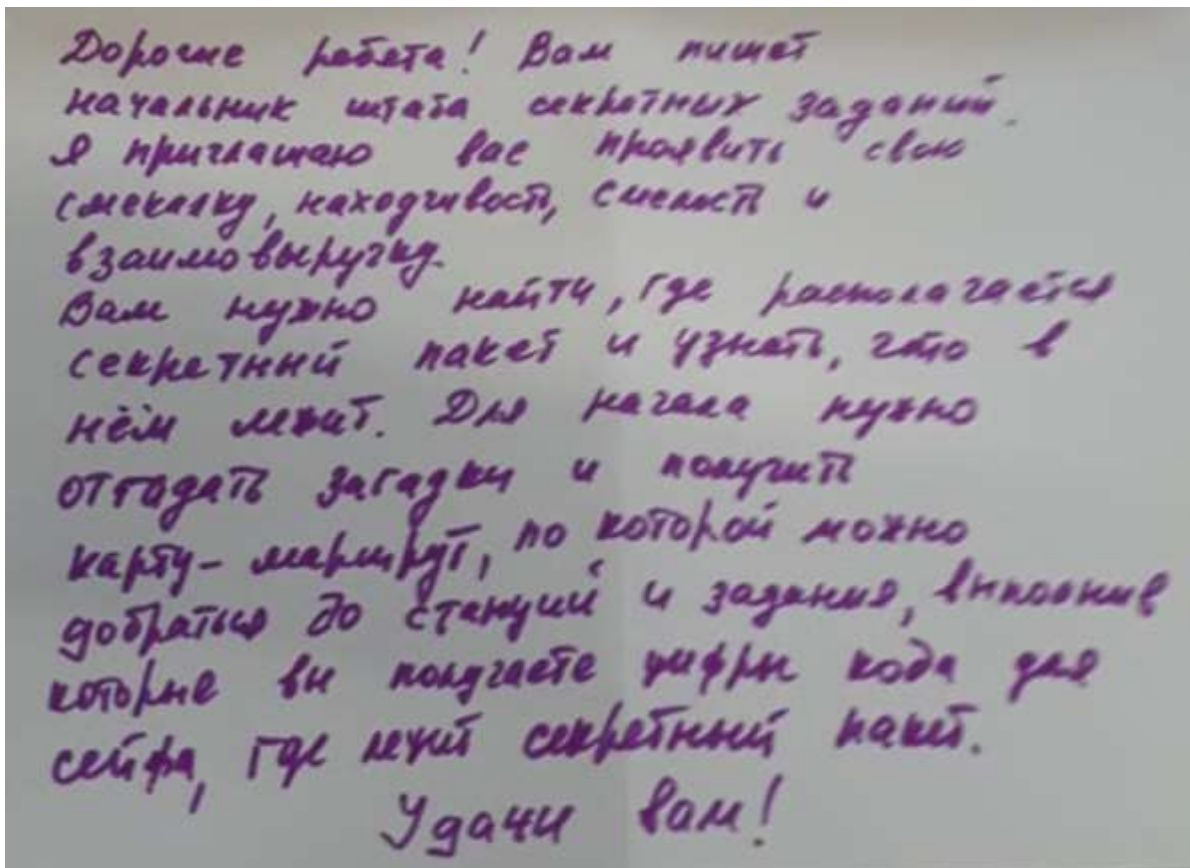 Дорогие ребята! Вам пишет
начальник штаба секретных заданий.
Я приглашаю вас проявить свою
смекалку, находчивость, смелость и
взаимовыручку.
Вам нужно найти, где располагается
секретный пакет и узнать, что в
нём лежит. Для начала нужно
отгадать загадки и получить
карту-маршрут, по которой можно
добраться до станций и задания, выполнив
которые вы получаете цифры кода для
сейфа, где лежит секретный пакет.
Удачи вам!